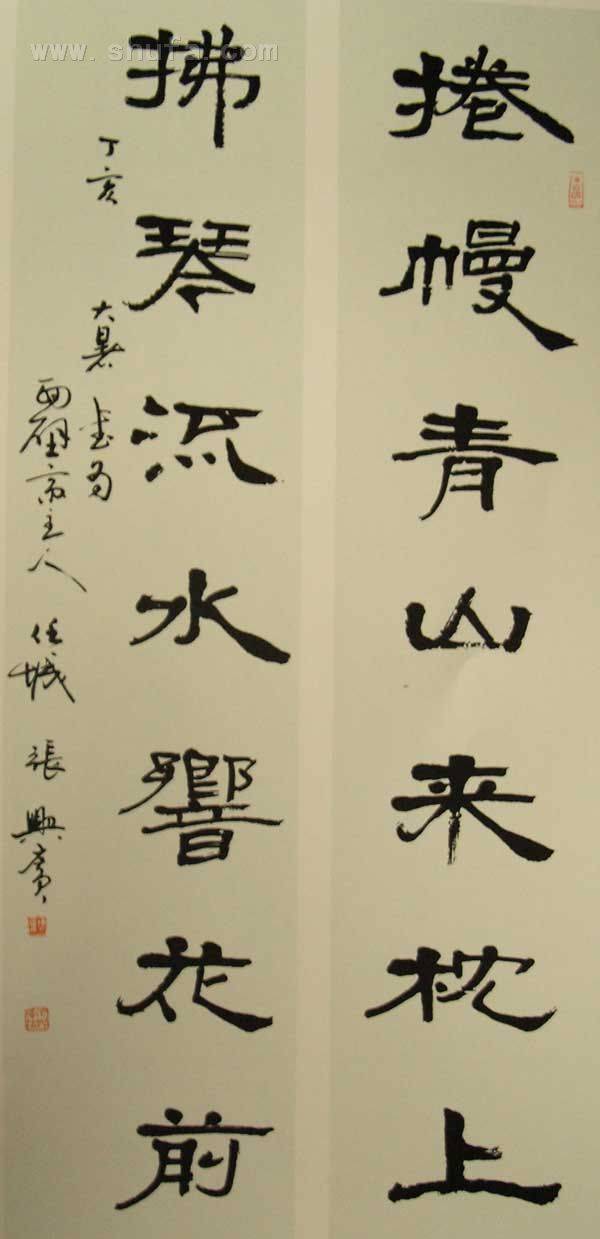 捲幔青山来枕上
拂琴流水響花前
丁亥大暑書为
主人任城張興廣
www.shufa.com